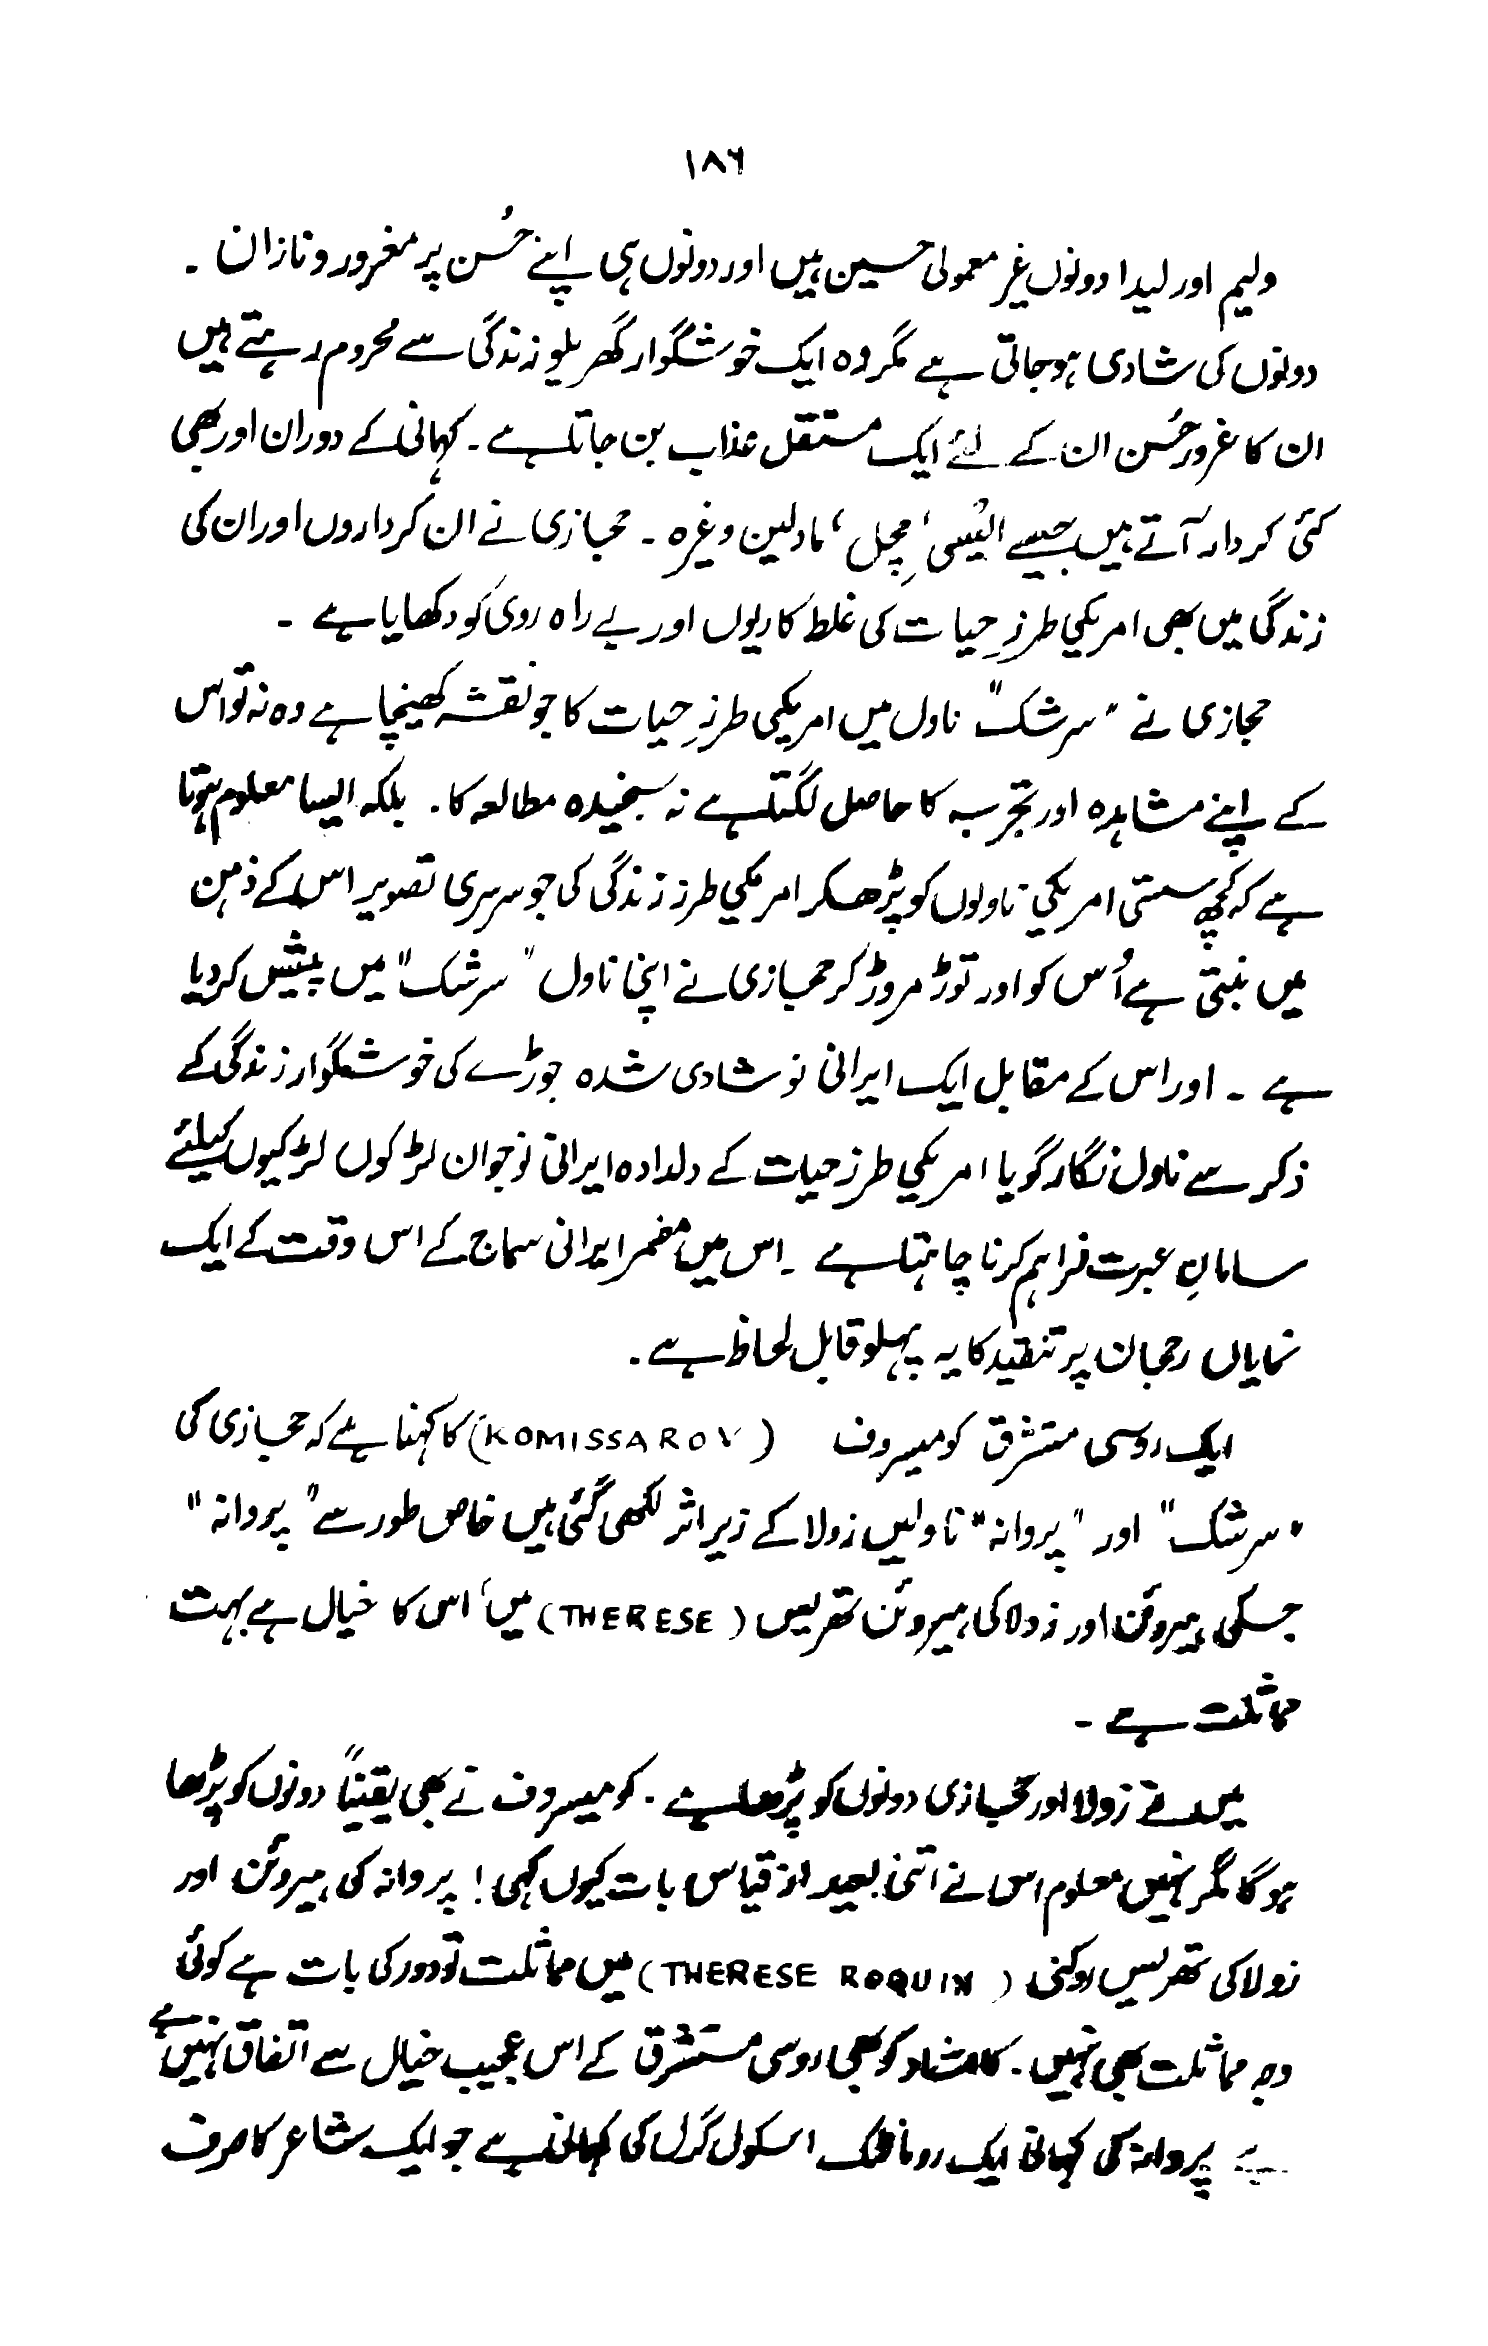 ۱۸۶
ولیم اور لیدا دونوں غیر معمولی حسین ہیں اور دونوں ہی اپنے حُسن پر مغرور و نازان ۔
دونوں کی شادی ہو جاتی ہے مگر وہ ایک خوشگوار گھریلو زندگی سے محروم رہتے ہیں
ان کا غرورِ حُسن ان کے لئے ایک مستقل عذاب بن جاتا ہے ۔ کہانی کے دوران اور بھی
کئی کردار آتے ہیں جیسے الیسی ، مچل ، مادلین وغیرہ ۔ حجازی نے ان کرداروں اور ان کی
زندگی میں بھی امریکی طرزِ حیات کی غلط کاریوں اور بے راہ روی کو دکھایا ہے ۔
حجازی نے "سرشک" ناول میں امریکی طرزِ حیات کا جو نقشہ کھینچا ہے وہ نہ تو اس
کے اپنے مشاہدہ اور تجربہ کا حاصل لگتا ہے نہ سنجیدہ مطالعہ کا ۔ بلکہ ایسا معلوم ہوتا
ہے کہ کچھ سستی امریکی ناولوں کو پڑھکر امریکی طرز زندگی کی جو سرسری تصویر اس کے ذہن
میں بنتی ہے اُس کو اور توڑ مروڑ کر حجازی نے اپنا ناول "سرشک" میں پیش کر دیا
ہے ۔ اور اس کے مقابل ایک ایرانی نو شادی شدہ جوڑے کی خوشگوار زندگی کے
ذکر سے ناول نگار گویا امریکی طرز حیات کے دلدادہ ایرانی نوجوان لڑکوں لڑکیوں کیلئے
سامانِ عبرت فراہم کرنا چاہتا ہے ۔ اس میں مضمر ایرانی سماج کے اس وقت کے ایک
نمایاں رجحان پر تنقید کا یہ پہلو قابل لحاظ ہے ۔
ایک روسی مستشرق کومیسروف (KOMISSAROV) کا کہنا ہے کہ حجازی کی
"سرشک" اور "پروانہ" ناولیں زولا کے زیر اثر لکھی گئی ہیں خاص طور سے "پروانہ"
جسکی ہیروئن اور زولا کی ہیروئن تھریس (THERESE) میں ، اس کا خیال ہے بہت
مماثلت ہے ۔
میں نے زولا اور حجازی دونوں کو پڑھا ہے ۔ کومیسروف نے بھی یقیناً دونوں کو پڑھا
ہوگا مگر نہیں معلوم اس نے اتنی بعید از قیاس بات کیوں کہی ! پروانہ کی ہیروئن اور
زولا کی تھریس روکنی (THERESE ROQUIN) میں مماثلت تو دور کی بات ہے کوئی
وجہ مماثلت بھی نہیں ۔ کامشاد کو بھی روسی مستشرق کے اس عجیب خیال سے اتفاق نہیں ہے
ہے پروانہ کی کہانی ایک رومانٹک اسکول گرل کی کہانی ہے جو ایک شاعر کا صرف